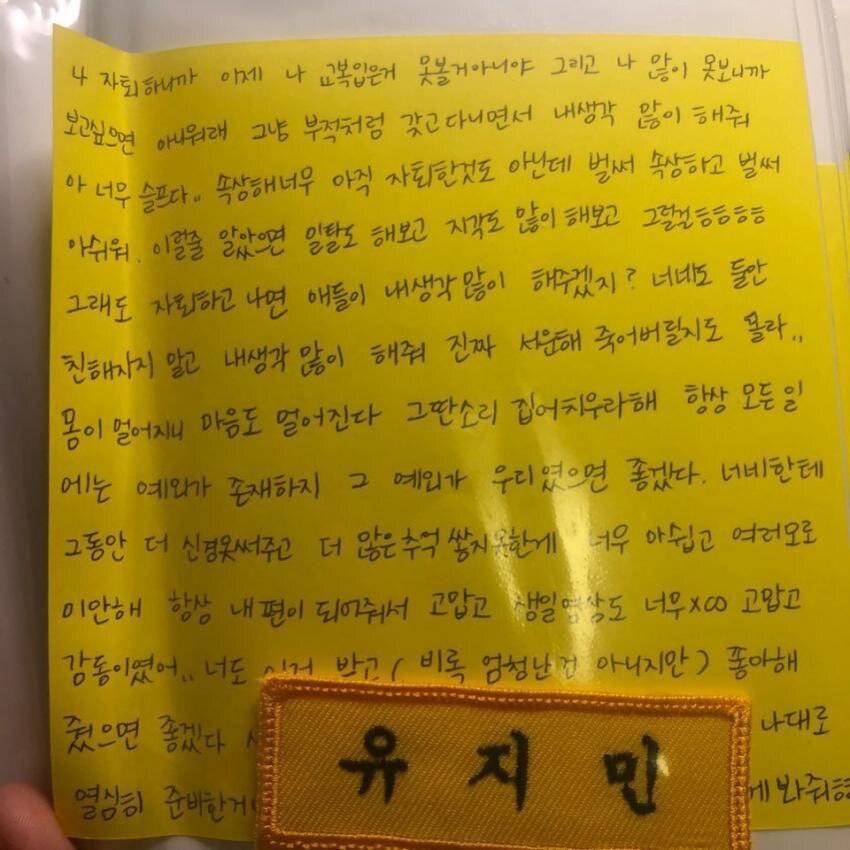 나 자퇴하니까 이제 나 교복입은거 못볼거아니야 그리고 나 많이 못보니까
보고싶으면 아니워래 그냥 부적처럼 갖고다니면서 내생각 많이 해줘
아 너무 슬프다.. 속상해너무 아직 자퇴한것도 아닌데 벌써 속상하고 벌써
아쉬워. 이럴줄 알았으면 일탈도 해보고 지각도 많이해보고 그럴걸ㅎㅎㅎㅎ
그래도 자퇴하고 나면 애들이 내생각 많이 해주겠지? 너네도 둘만
친해지지 말고 내생각 많이 해줘 진짜 서운해 죽어버릴지도 몰라..
몸이 멀어지니 마음도 멀어진다 그딴소리 집어치우라해 항상 모든일
에는 예외가 존재하지 그 예외가 우리였으면 좋겠다. 너네한테
그동안 더 신경못써주고 더 많은추억 쌓지못한게 너무 아쉽고 여러모로
미안해 항상 내편이 되어줘서 고맙고 생일영상도 너무x∞ 고맙고
감동이였어.. 너도 이거 받고 (비록 엄청난건 아니지만) 좋아해
줬으면 좋겠다 나대로
열심히 준비한거 게 봐줘ㅎ
유지민